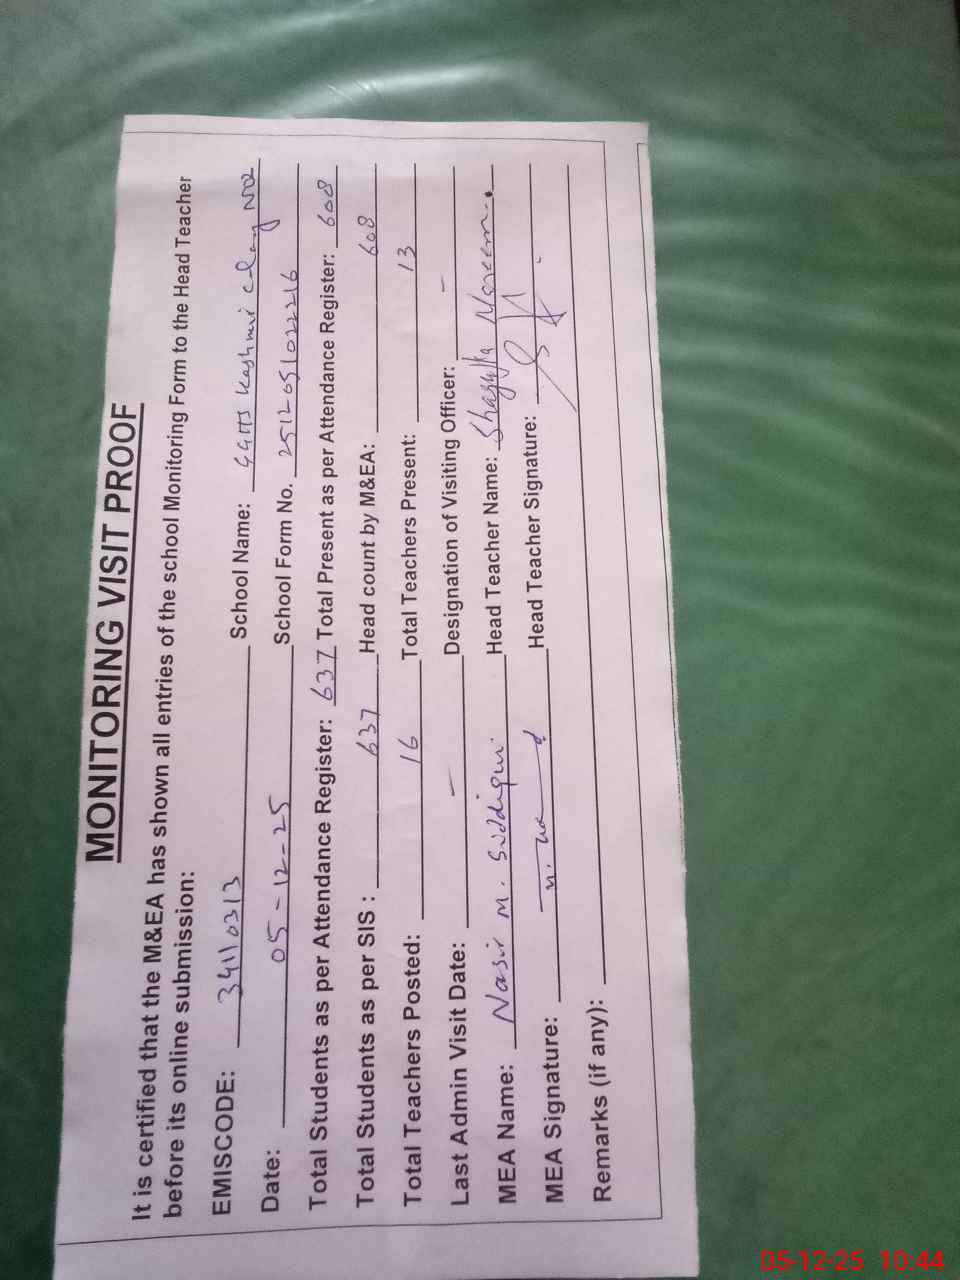 MONITORING VISIT PROOF
It is certified that the M&EA has shown all entries of the school Monitoring Form to the Head Teacher
before its online submission:
EMISCODE: 34110313 School Name: GGHS Kashmir
Date: 05-12-25 School Form No. 2512051022216
Total Students as per Attendance Register: 637 Total Present as per Attendance Register: 608
Total Students as per SIS : 637 Head count by M&EA: 608
Total Teachers Posted: 16 Total Teachers Present: 13
Last Admin Visit Date: – Designation of Visiting Officer: –
MEA Name: Nasir M. Siddiqui Head Teacher Name: Shagufta Nasreem
MEA Signature: Head Teacher Signature:
Remarks (if any):
05-12-25 10:44